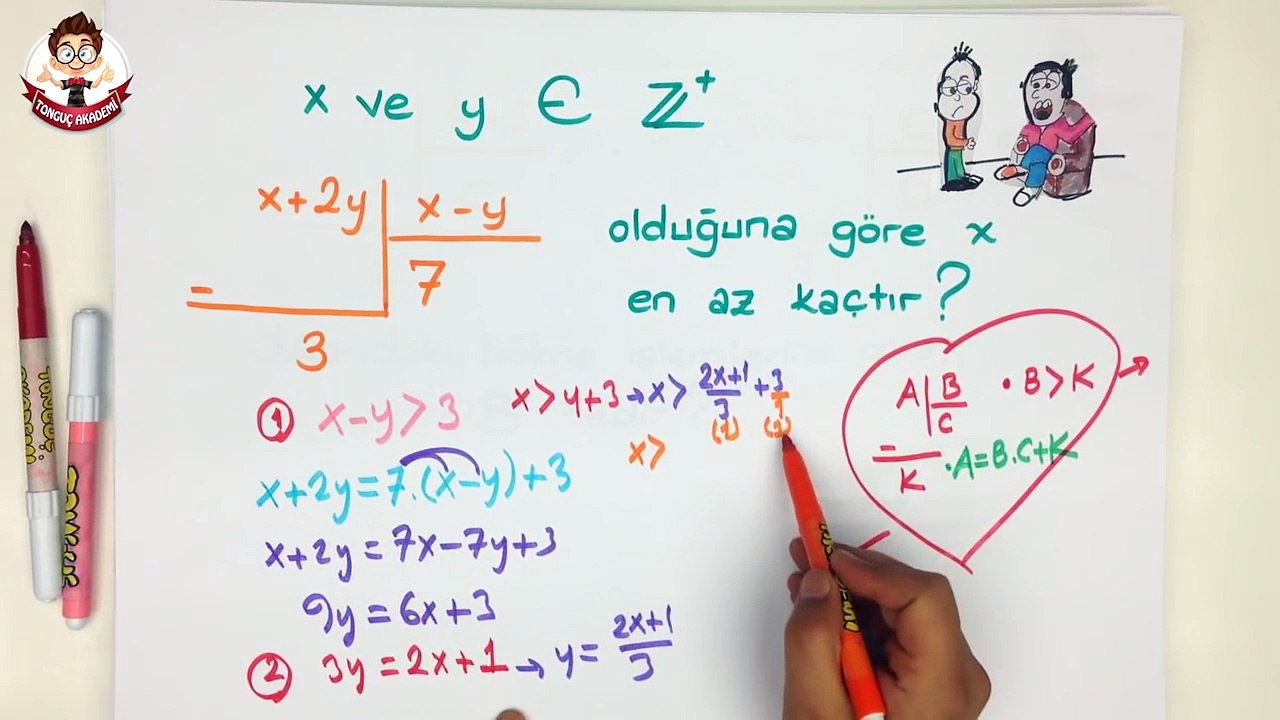 TONGUÇ AKADEMİ
x ve y ∈ ℤ⁺
x+2y | x-y
7
-
3
olduğuna göre x
en az kaçtır?
① x-y>3
x>y+3→x> (2x+1)/3 + 3/1
(1) (3)
x>
x+2y=7.(x-y)+3
x+2y=7x-7y+3
9y=6x+3
② 3y=2x+1→y=(2x+1)/3
A | B
C
-
K
• B>K
• A=B.C+K